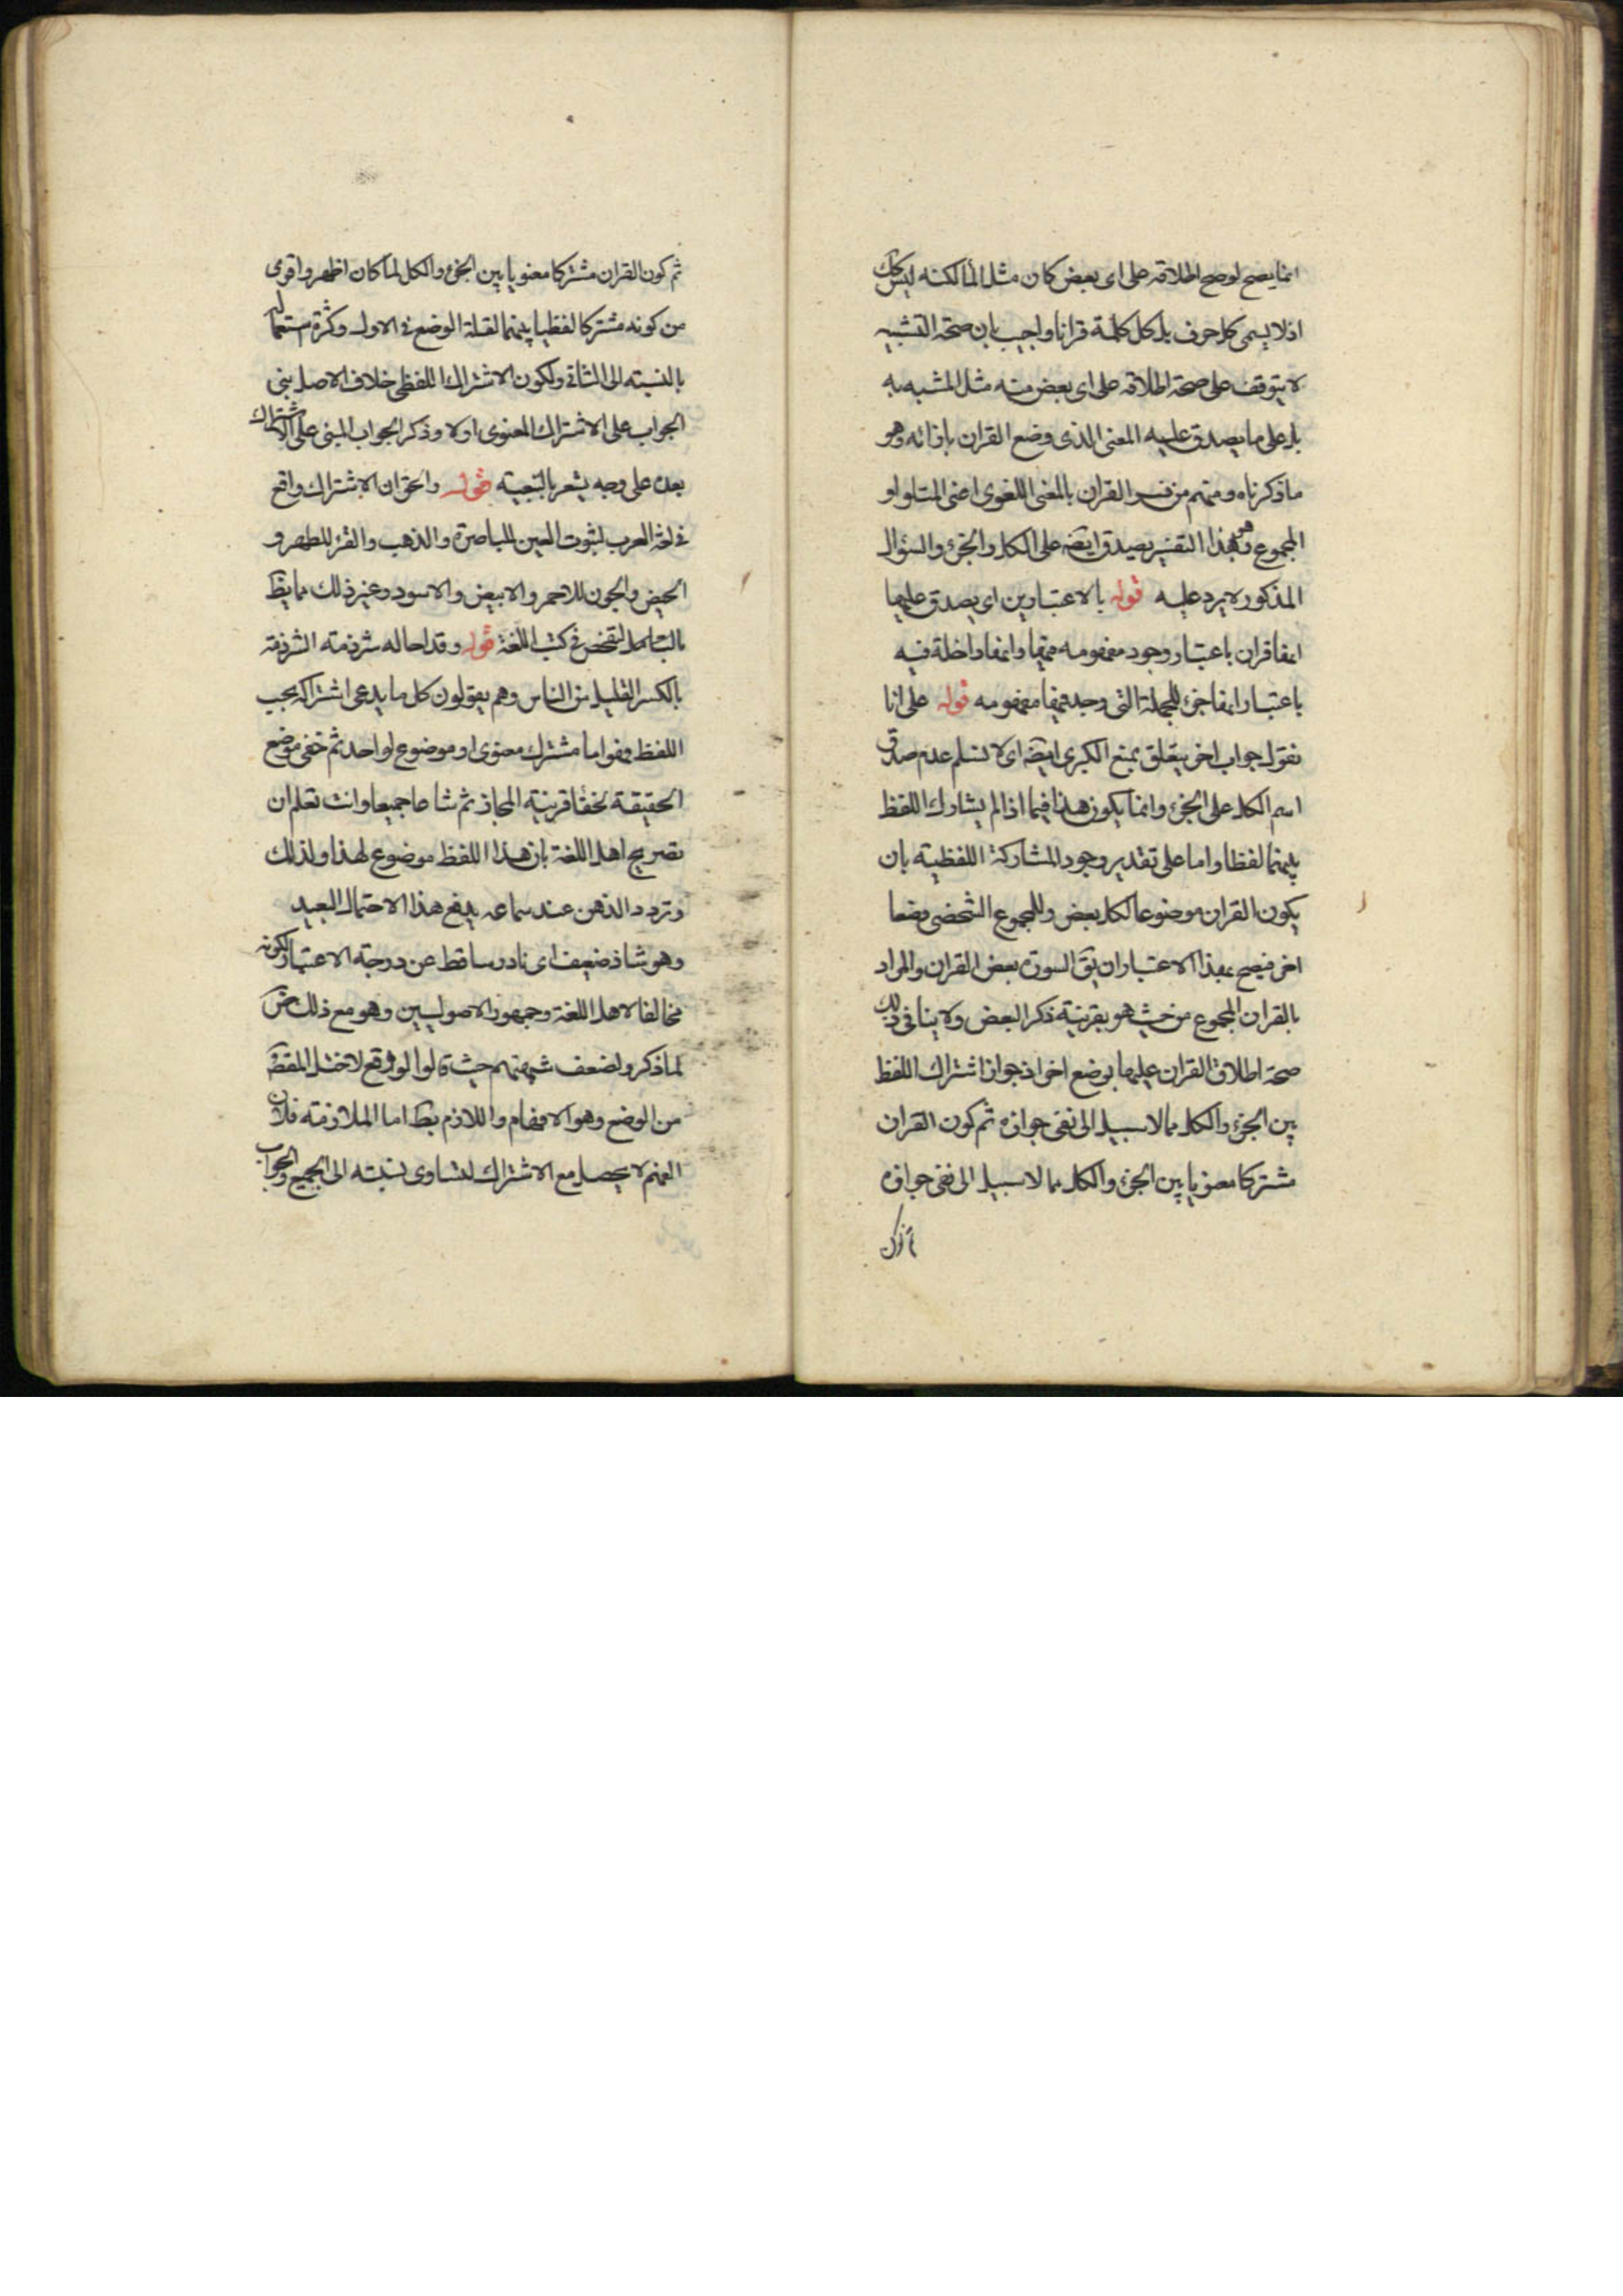 انما يصح لوصح اطلاقه على اى بعض كان مثل الماء لكنه ليس كك
اذ لا يسمى كل حرف بل كل كلمة قرانا واجيب بان صحة التشبيه
لا يتوقف على صحة اطلاقه على اى بعض منه مثل المشبه به
بل على ما يصدق عليه المعنى الذى وضع القران بازائه وهو
ما ذكرناه ومنهم من فسر القران بالمعنى اللغوى اعنى المتلو او
المجموع وهذا التفسير يصدق ايضه على الكل والجزء والسؤال
المذكور لا يرد عليه قوله بالاعتبارين اى يصدق عليها
انها قران باعتبار وجود مفهومه فيها وانها داخلة فيه
باعتبار انها جزء للجملة التى وجد فيها مفهومه قوله على انا
نقول جواب اخر يتعلق بمنع الكبرى ايضه اى لا نسلم عدم صدق
اسم الكل على الجزء وانما يكون هذا فيما اذا لم يشارك اللفظ
بينهما لفظا واما على تقدير وجود المشاركة اللفظية بان
يكون القران موضوعا لكل بعض وللمجموع الشخصى وضعا
اخر فيصح بهذا الاعتبار ان يق السورة بعض القران والمراد
بالقران المجموع من حيث هو بقرينة ذكر البعض ولا ينافى ذلك
صحة اطلاق القران عليها بوضع اخر اذ جواز اشتراك اللفظ
بين الجزء والكل مما لا سبيل الى نفى جوازه ثم كون القران
مشتركا معنويا بين الجزء والكل مما لا سبيل الى نفى جوازه
ثم كون القران مشتركا معنويا بين الجزء والكل لما كان اظهر واقوى
من كونه مشتركا لفظيا بينهما لقلة الوضع فى الاول وكثرة استعماله
بالنسبة الى الثانى ولكون الاشتراك اللفظى خلاف الاصل بنى
الجواب على الاشتراك المعنوى اولا وذكر الجواب المبنى على الاشتراك
بعده على وجه يشعر بالتبعية قوله والحق ان الاشتراك واقع
فى لغة العرب لثبوت العين للباصرة والذهب والقرء للطهر و
الحيض والجون للاحمر والابيض والاسود وغير ذلك مما يظ
بالتامل التفحص فى كتب اللغة قوله وقد احاله شرذمة الشرذمة
بالكسر القليل من الناس وهم يقولون كل ما يدعى اشتراكه بحسب
اللفظ فهو اما مشترك معنوى او موضوع لواحد ثم خفى موضع
الحقيقة لخفاء قرينة المجاز ثم شاعا جميعا وانت تعلم ان
تصريح اهل اللغة بان هذا اللفظ موضوع لهذا ولذلك
وتردد الذهن عند سماعه يدفع هذا الاحتمال البعيد
وهو شاذ ضعيف اى نادر ساقط عن درجة الاعتبار لكونه
مخالفا لاهل اللغة وجمهور الاصوليين وهو مع ذلك ض
لما ذكر ولضعف شبهتهم حيث قالوا لو وقع لاختل المقصود
من الوضع وهو الافهام واللازم بط اما الملازمة فلان
الفهم لا يحصل مع الاشتراك لتساوى نسبته الى الجميع والجواب